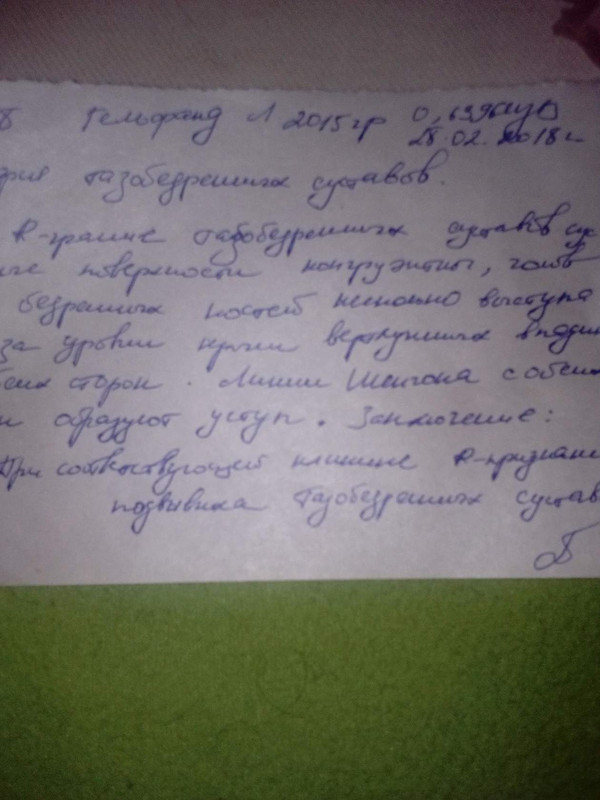 Гельфанд Л 2015 гр
28.02.2018г
тазобедренных суставов.
R-грамме тазобедренных суставов сус
поверхности конгруэнтны, голов
бедренных костей неполно выступа
за уровни крыш вертлужных впадин
сторон. Линии Шентона с обеих
образуют уступ. Заключение:
При соответствующей клинике R-признаки
подвывиха тазобедренных сустав